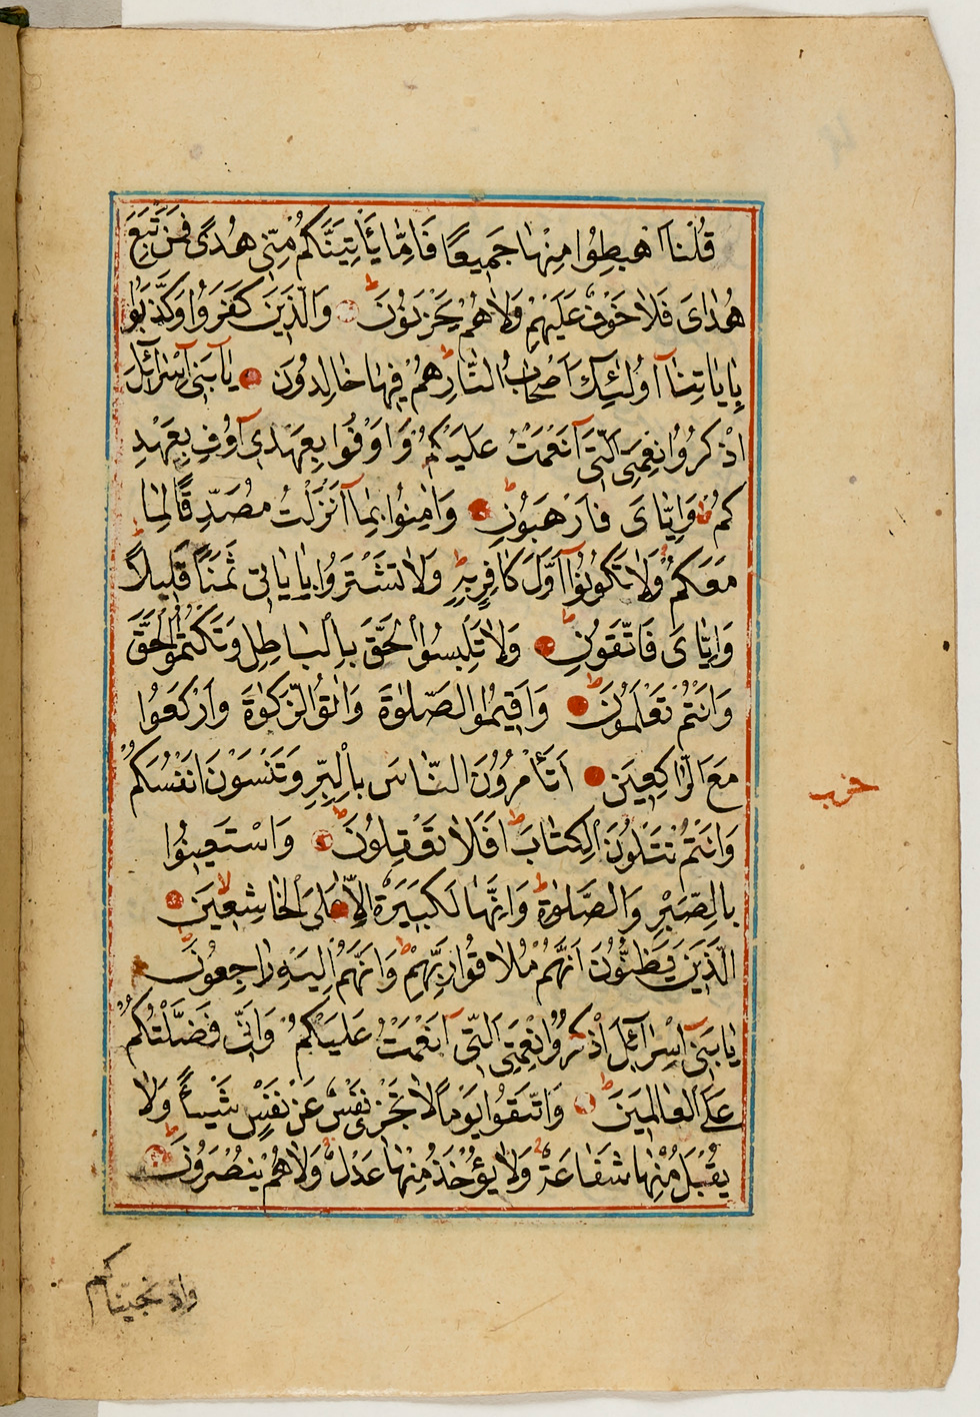 قُلْنَا اهْبِطُوا مِنْهَا جَمِيعًا فَاِمَّا يَأْتِيَنَّكُمْ مِنِّى هُدًى فَمَنْ تَبِعَ
هُدَاىَ فَلَا خَوْفٌ عَلَيْهِمْ وَلَا هُمْ يَحْزَنُونَ ط وَالَّذِينَ كَفَرُوا وَكَذَّبُوا
بِاٰيَاتِنَا اُولٰئِكَ اَصْحَابُ النَّارِ ط هُمْ فِيهَا خَالِدُونَ يَا بَنِى اِسْرَائِلَ
اذْكُرُوا نِعْمَتِىَ الَّتِى اَنْعَمْتُ عَلَيْكُمْ وَاَوْفُوا بِعَهْدِى اُوفِ بِعَهْدِ
كُمْ وَاِيَّاىَ فَارْهَبُونِ ط وَاٰمِنُوا بِمَا اَنْزَلْتُ مُصَدِّقًا لِمَا
مَعَكُمْ وَلَا تَكُونُوا اَوَّلَ كَافِرٍ بِهِ ط وَلَا تَشْتَرُوا بِاٰيَاتِى ثَمَنًا قَلِيلًا ط
وَاِيَّاىَ فَاتَّقُونِ ط وَلَا تَلْبِسُوا الْحَقَّ بِالْبَاطِلِ وَتَكْتُمُوا الْحَقَّ
وَاَنْتُمْ تَعْلَمُونَ ط وَاَقِيمُوا الصَّلٰوةَ وَاٰتُوا الزَّكٰوةَ وَارْكَعُوا
مَعَ الرَّاكِعِينَ اَتَأْمُرُونَ النَّاسَ بِالْبِرِّ وَتَنْسَوْنَ اَنْفُسَكُمْ
وَاَنْتُمْ تَتْلُونَ الْكِتَابَ ط اَفَلَا تَعْقِلُونَ ط وَاسْتَعِينُوا
بِالصَّبْرِ وَالصَّلٰوةِ ط وَاِنَّهَا لَكَبِيرَةٌ اِلَّا عَلَى الْخَاشِعِينَ لا
الَّذِينَ يَظُنُّونَ اَنَّهُمْ مُلَاقُوا رَبِّهِمْ ط وَاَنَّهُمْ اِلَيْهِ رَاجِعُونَ
يَا بَنِى اِسْرَائِلَ اذْكُرُوا نِعْمَتِىَ الَّتِى اَنْعَمْتُ عَلَيْكُمْ وَاَنِّى فَضَّلْتُكُمْ
عَلَى الْعَالَمِينَ ط وَاتَّقُوا يَوْمًا لَا تَجْزِى نَفْسٌ عَنْ نَفْسٍ شَيْـًٔا وَلَا
يُقْبَلُ مِنْهَا شَفَاعَةٌ وَلَا يُؤْخَذُ مِنْهَا عَدْلٌ وَلَا هُمْ يُنْصَرُونَ ط
حزب
واذ نجيناكم